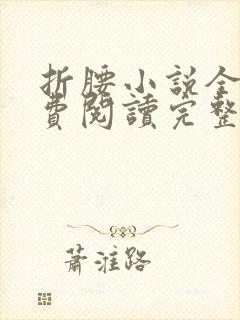 折腰小說全
費閱讀完整
蕭淮路